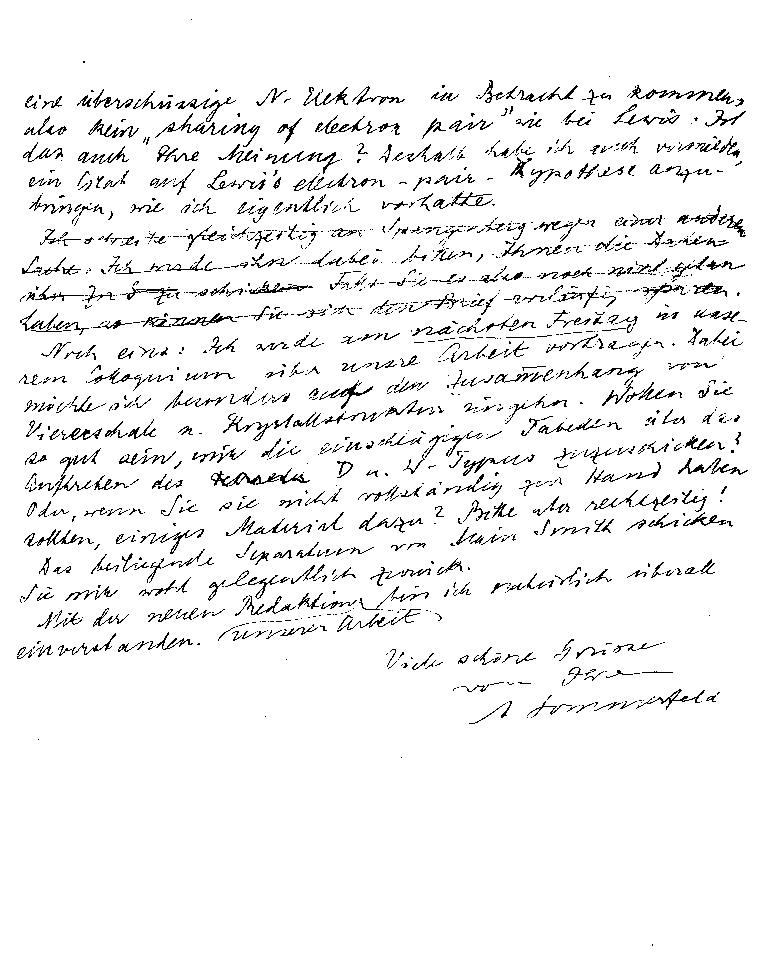 eine überschüssige N-Elektron in Betracht zu kommen,
also kein „sharing of electron pair" wie bei Lewis. Ist
das auch Ihre Meinung? Deshalb habe ich auch vermieden,
ein Citat auf Lewis's electron-pair-Hypothese anzu-
bringen, wie ich eigentlich vorhatte.
Ich schreibe gleichzeitig an Spangenberg wegen einer anderen
Sache. Ich werde ihn dabei bitten, Ihnen die Daten
über Zn S zu schicken Falls Sie es also noch nicht getan
haben, so können Sie sich den Brief vorläufig sparen.
Noch eins: Ich werde am nächsten Freitag in unse-
rem Colloquium über unsere Arbeit vortragen. Dabei
möchte ich besonders auf den Zusammenhang von
Viererschale u. Krystallstruktur eingehen. Wollen Sie
so gut sein, mir die einschlägigen Tabellen über das
Auftreten des D u. W-Typus zuzuschicken?
Oder, wenn Sie sie nicht vollständig zur Hand haben
sollten, einiges Material dazu? Bitte aber rechtzeitig!
Das beiliegende Separatum von Main Smith schicken
Sie mir wohl gelegentlich zurück.
Mit der neuen Redaktion bin ich natürlich überall
einverstanden. unserer Arbeit
Viele schöne Grüsse
von Ihrem
A Sommerfeld